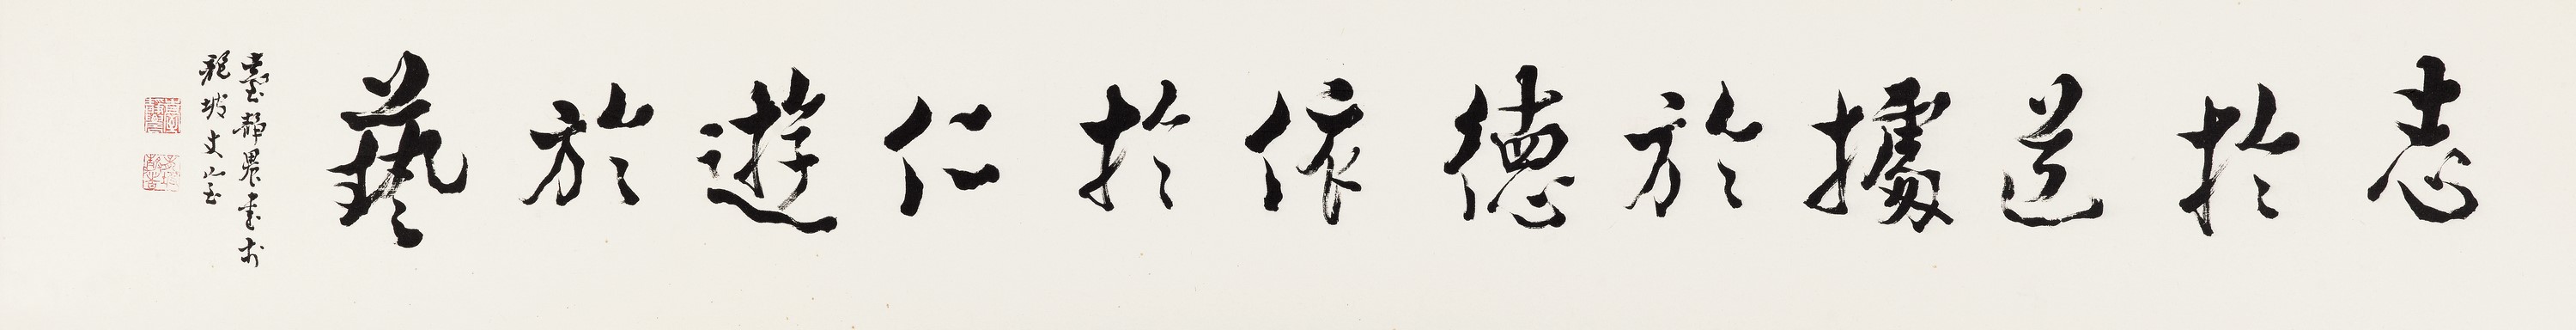 志於道據於德依於仁遊於藝
臺靜農書於
龍坡丈室